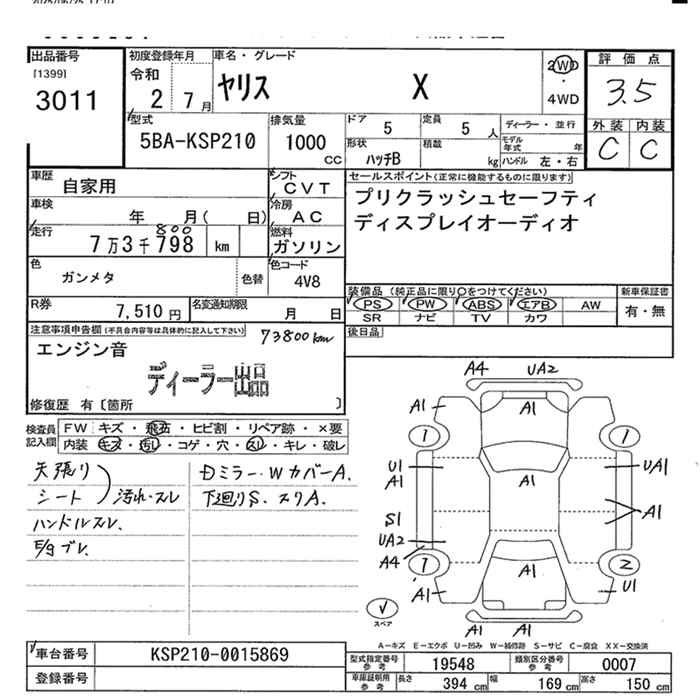 出品番号
[1399]
3011
初度登録年月
令和
2 7月
車名・グレード
ヤリス X
2WD
・
4WD
評価点
3.5
外装 内装
C C
型式
5BA-KSP210
排気量
1000
CC
ドア 5
定員 5 人
ディーラー・並行
形状
ハッチB
積載 kg
モデル年式 年
ハンドル 左・右
車歴
自家用
シフト
CVT
セールスポイント(正常に機能するものに限ります)
プリクラッシュセーフティ
ディスプレイオーディオ
車検
年 月( 日)
冷房
AC
走行
800
7万3千798 km
燃料
ガソリン
色
ガンメタ
色替
色コード
4V8
装備品(純正品に限り○をつけてください)
PS PW ABS エアB AW
SR ナビ TV カワ
新車保証書
有・無
R券
7,510円
名変通知期限
月 日
後日品
注意事項申告欄(不具合内容等は具体的に記入して下さい)
73800km
エンジン音
ディーラー出品
修復歴 有〔箇所 〕
検査員
記入欄
FW キズ・飛石・ヒビ割・リペア跡・×要
内装 キズ・汚れ・コゲ・穴・スレ・キレ・破レ
天張り
シート 汚れ・スレ
ハンドルスレ.
E/gブレ.
Dミラー・WカバーA.
下廻りS. スリA.
A4 UA2
A1 A1
1 1
A1
U1 UA1
A1
S1 A1
UA2
A4
1 A1 2
A1 U1
A1 A1
スペア
A-キズ E-エクボ U-凹み W-補修跡 S-サビ C-腐食 XX-交換済
車台番号
KSP210-0015869
登録番号
型式指定番号
参考
19548
類別区分番号
参考
0007
車庫証明用
参考
長さ 394 cm
幅 169 cm
高さ 150 cm